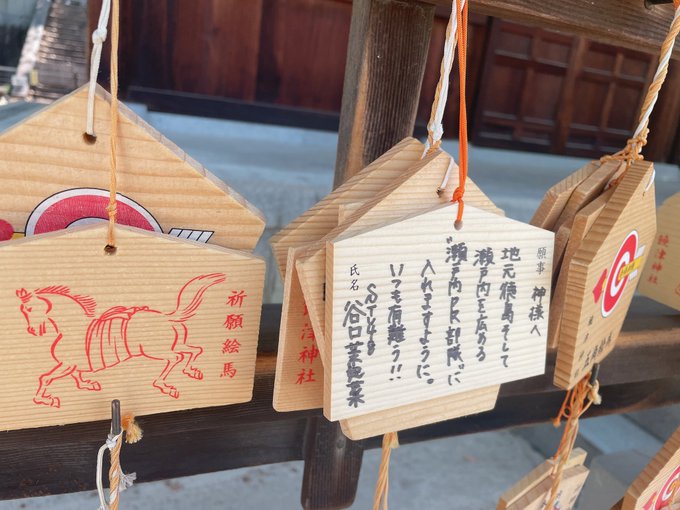 祈願絵馬
津神社
願事 神様へ
地元徳島そして
瀬戸内を広める
"瀬戸内PR部隊"に
入れますように。
いつも有難う!!
STU48
氏名 谷口茉妃菜
津神社